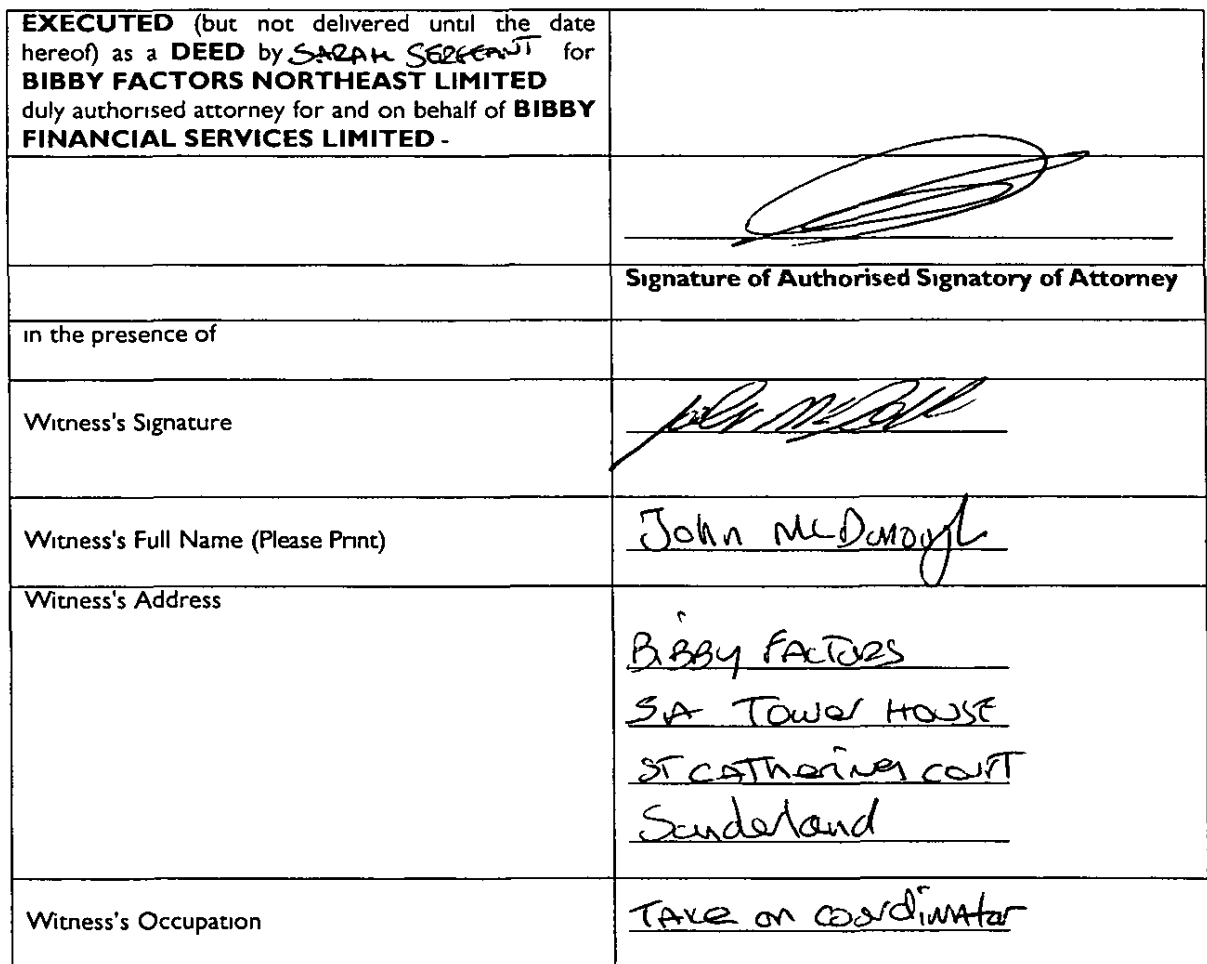 EXECUTED (but not delivered until the date
hereof) as a DEED by SARAH SERGEANT for
BIBBY FACTORS NORTHEAST LIMITED
duly authorised attorney for and on behalf of BIBBY
FINANCIAL SERVICES LIMITED -
Signature of Authorised Signatory of Attorney
in the presence of
Witness's Signature
Witness's Full Name (Please Print)
John McDonough
Witness's Address
BIBBY FACTORS
5A Tower HOUSE
ST CATherines COURT
Sunderland
Witness's Occupation
TAKE on coordinator